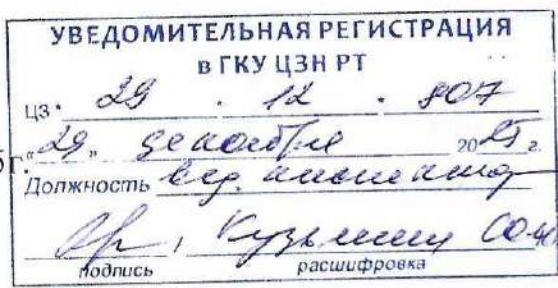 УВЕДОМИТЕЛЬНАЯ РЕГИСТРАЦИЯ
в ГКУ ЦЗН РТ
ЦЗ • 29 • 12 • 807
г. "29" декабря 2025 г.
Должность вед. инспектор
Кузьмин
подпись расшифровка